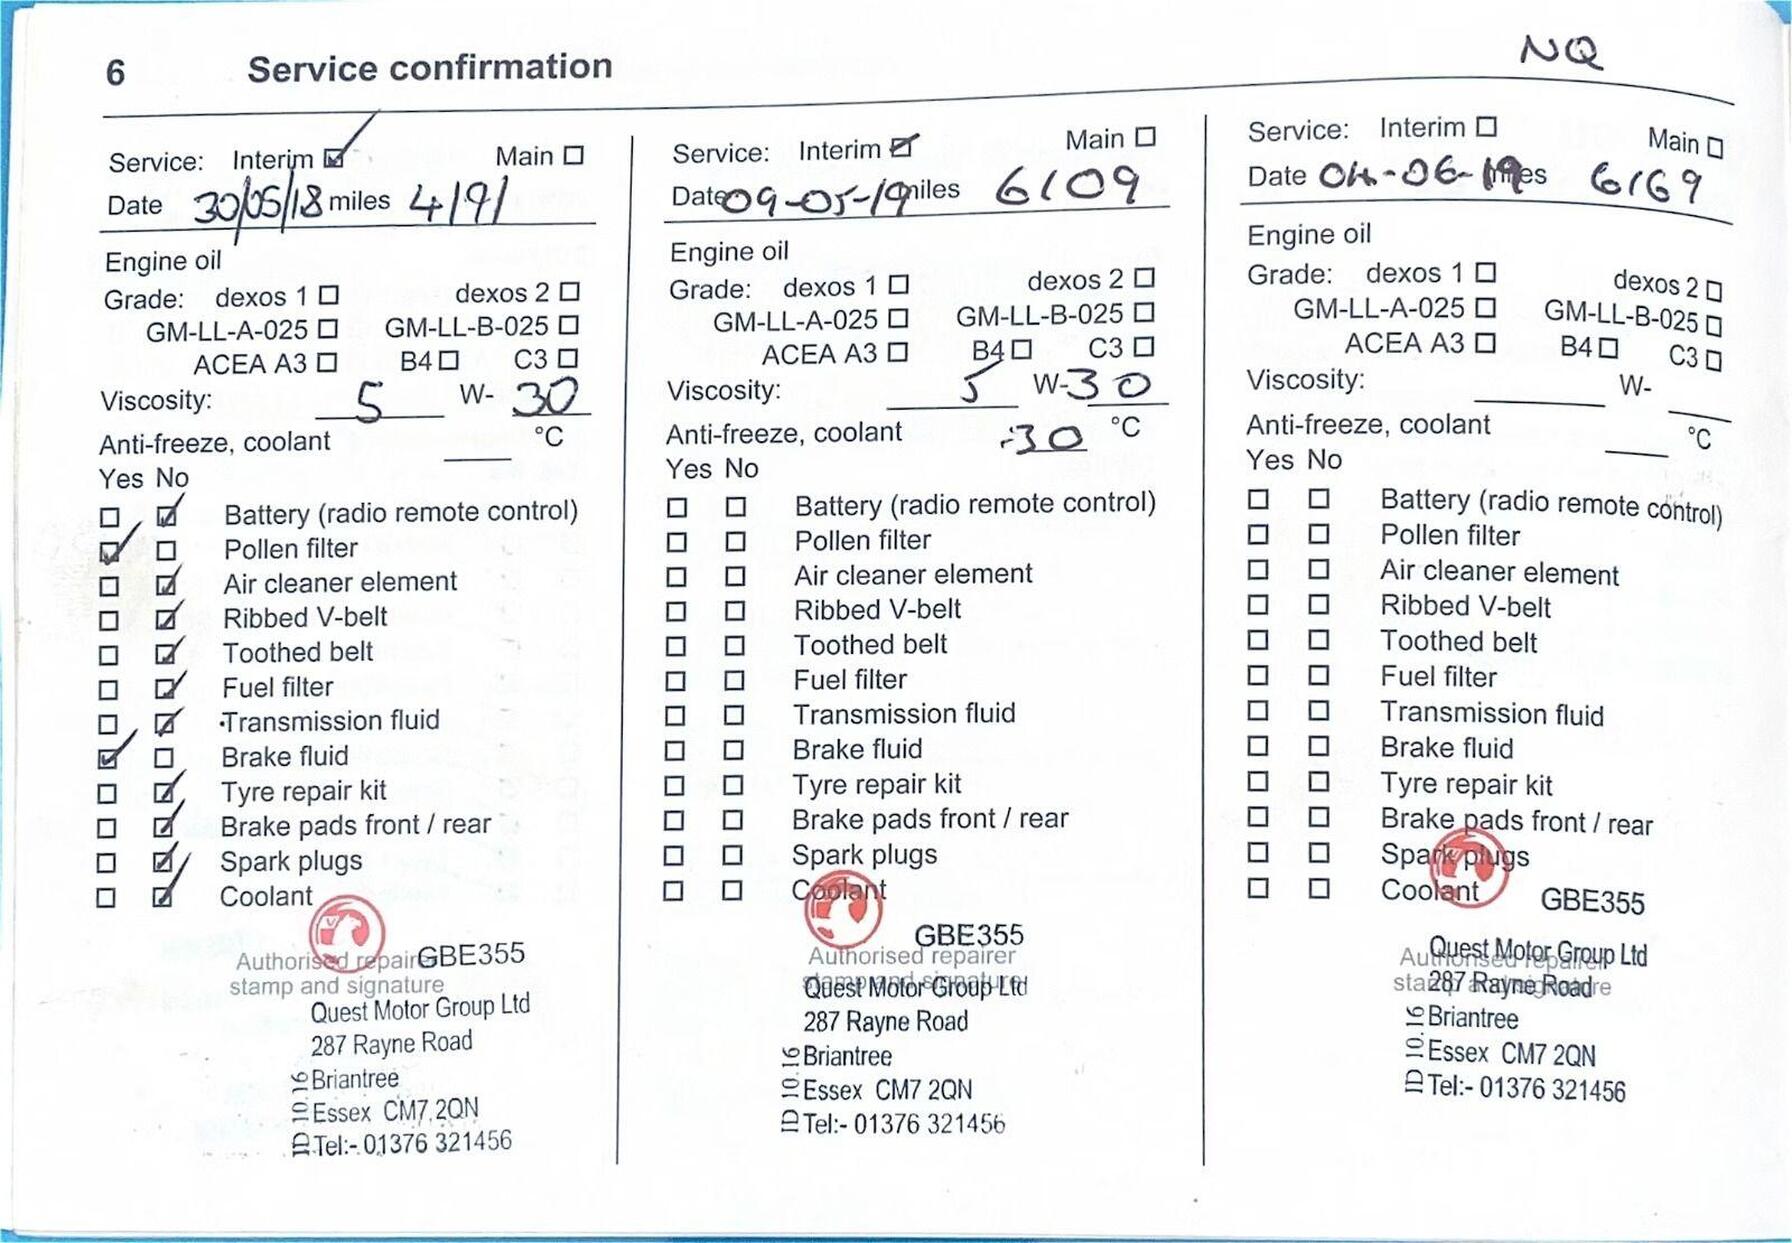 6 Service confirmation NQ
Service: Interim ☑ Main ☐
Date 30/05/18 miles 4191
Engine oil
Grade: dexos 1 ☐ dexos 2 ☐
GM-LL-A-025 ☐ GM-LL-B-025 ☐
ACEA A3 ☐ B4 ☐ C3 ☐
Viscosity: 5 W- 30
Anti-freeze, coolant ___ °C
Yes No
☐ ☑ Battery (radio remote control)
☑ ☐ Pollen filter
☐ ☑ Air cleaner element
☐ ☑ Ribbed V-belt
☐ ☑ Toothed belt
☐ ☑ Fuel filter
☐ ☑ Transmission fluid
☑ ☐ Brake fluid
☐ ☑ Tyre repair kit
☐ ☑ Brake pads front / rear
☐ ☑ Spark plugs
☐ ☑ Coolant
Authorised repairer GBE355
stamp and signature
Quest Motor Group Ltd
287 Rayne Road
Briantree
Essex CM7 2QN
Tel:- 01376 321456
ID 10.16
Service: Interim ☑ Main ☐
Date 09-05-19 miles 6109
Engine oil
Grade: dexos 1 ☐ dexos 2 ☐
GM-LL-A-025 ☐ GM-LL-B-025 ☐
ACEA A3 ☐ B4 ☐ C3 ☐
Viscosity: 5 W-30
Anti-freeze, coolant -30 °C
Yes No
☐ ☐ Battery (radio remote control)
☐ ☐ Pollen filter
☐ ☐ Air cleaner element
☐ ☐ Ribbed V-belt
☐ ☐ Toothed belt
☐ ☐ Fuel filter
☐ ☐ Transmission fluid
☐ ☐ Brake fluid
☐ ☐ Tyre repair kit
☐ ☐ Brake pads front / rear
☐ ☐ Spark plugs
☐ ☐ Coolant
GBE355
Authorised repairer
stamp and signature
Quest Motor Group Ltd
287 Rayne Road
Briantree
Essex CM7 2QN
Tel:- 01376 321456
ID 10.16
Service: Interim ☐ Main ☐
Date 04-06-19 miles 6169
Engine oil
Grade: dexos 1 ☐ dexos 2 ☐
GM-LL-A-025 ☐ GM-LL-B-025 ☐
ACEA A3 ☐ B4 ☐ C3 ☐
Viscosity: ___ W- ___
Anti-freeze, coolant ___ °C
Yes No
☐ ☐ Battery (radio remote control)
☐ ☐ Pollen filter
☐ ☐ Air cleaner element
☐ ☐ Ribbed V-belt
☐ ☐ Toothed belt
☐ ☐ Fuel filter
☐ ☐ Transmission fluid
☐ ☐ Brake fluid
☐ ☐ Tyre repair kit
☐ ☐ Brake pads front / rear
☐ ☐ Spark plugs
☐ ☐ Coolant
GBE355
Authorised repairer
stamp and signature
Quest Motor Group Ltd
287 Rayne Road
Briantree
Essex CM7 2QN
Tel:- 01376 321456
ID 10.16